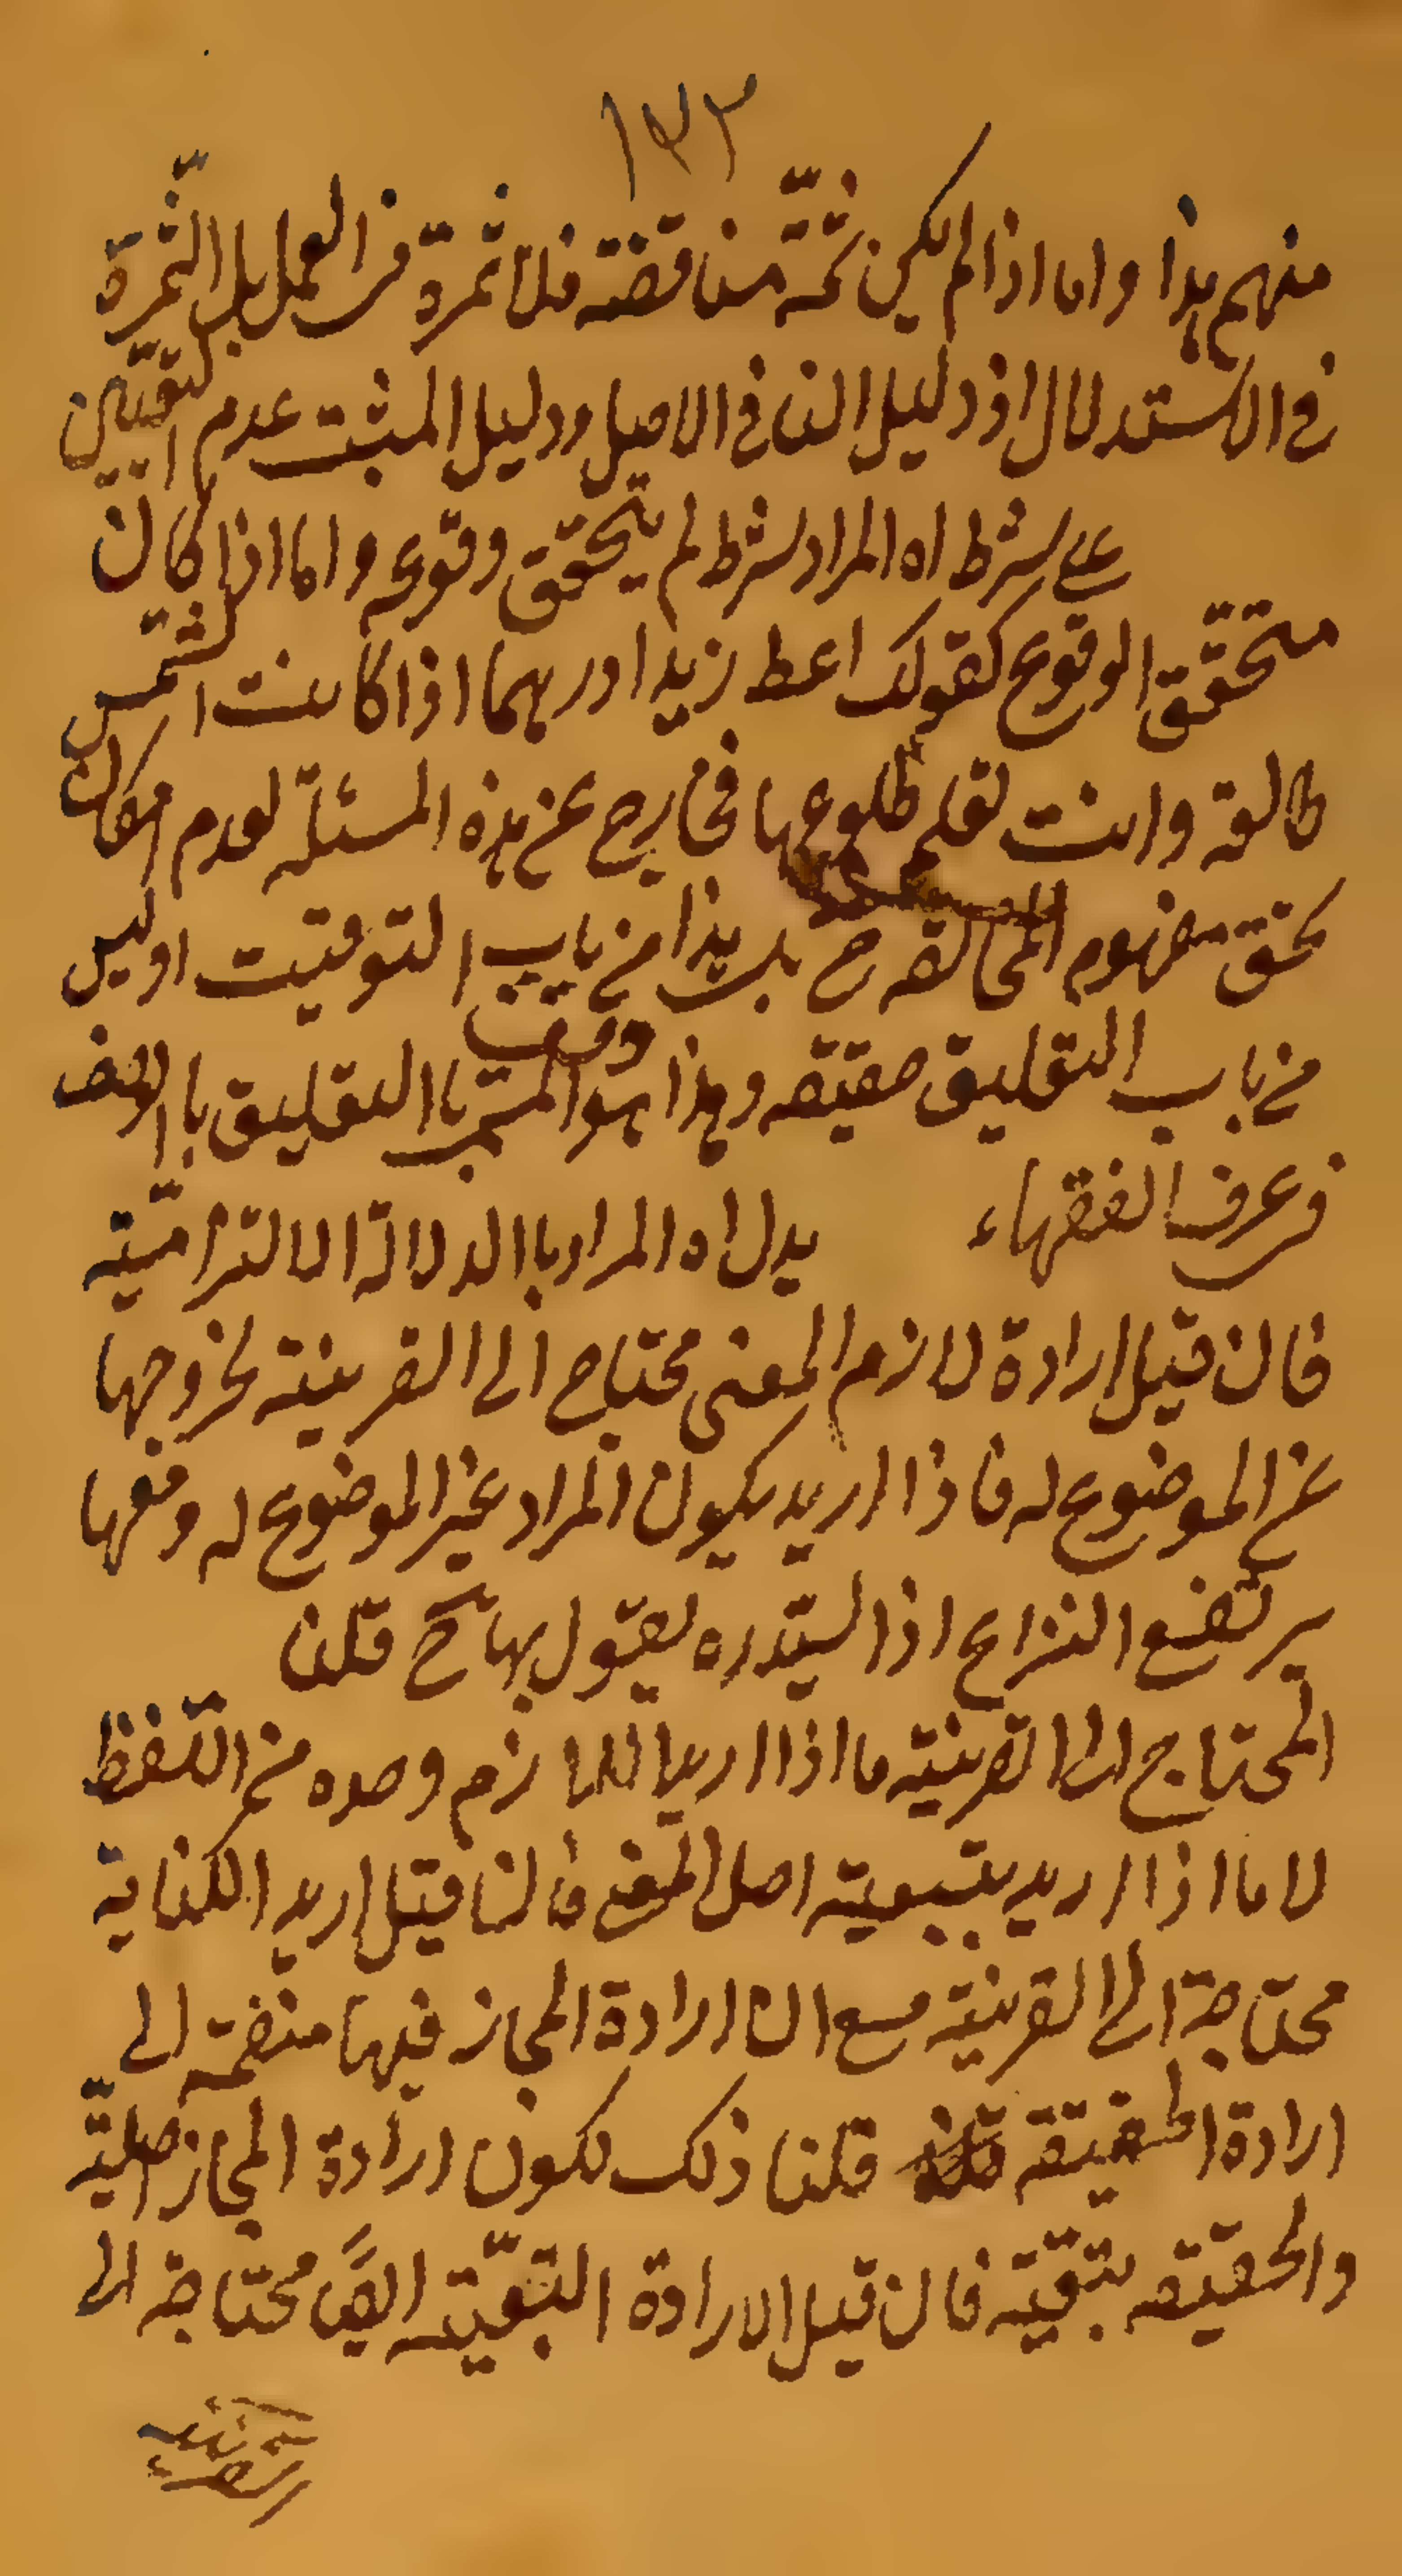 ١٣٣
منهم هذا واما اذا لم يكن ثمّة مناقضة فلا ثمرة فى العمل بل الثّمرة
فى الاستدلال اذ دليل النافى الاصل ودليل المثبت عدم التعيين
على شرط اه المراد شرط لم يتحقّق وقوعه واما اذا كان
متحقّق الوقوع كقولك اعط زيدا درهما اذا كانت الشمس
طالعة وانت تعلم طلوعها فخارج عن هذه المسئلة لعدم امكان
تحقق مفهوم المخالفة ح بل هذا من باب التوقيت اوليس
من باب التعليق حقيقه وهذا هو المسمى باالتعليق باالوصف
فى عرف الفقهاء يدل اه المراد باالدلالة الالتزاميّة
فان قيل ارادة لازم المعنى محتاج الى القرينة لخروجها
عن الموضوع له فاذا اريد يكون المراد غير الموضوع له ومعها
يرتفع النزاع اذ السيّد ره يقول بها ح قلنا
المحتاج الى القرينة ما اذا اريد اللازم وحده من اللّفظ
لا ما اذا اريد بتبعية اصل المعنى فان قيل اريد الكناية
محتاجة الى القرينة مع ان ارادة المجاز فيها منضمة الى
ارادة الحقيقة قلنا ذلك لكون ارادة المجاز اصليّة
والحقيقه بتبعيّة فان قيل الارادة التبعيّة ايضً محتاجة الى
القرينة